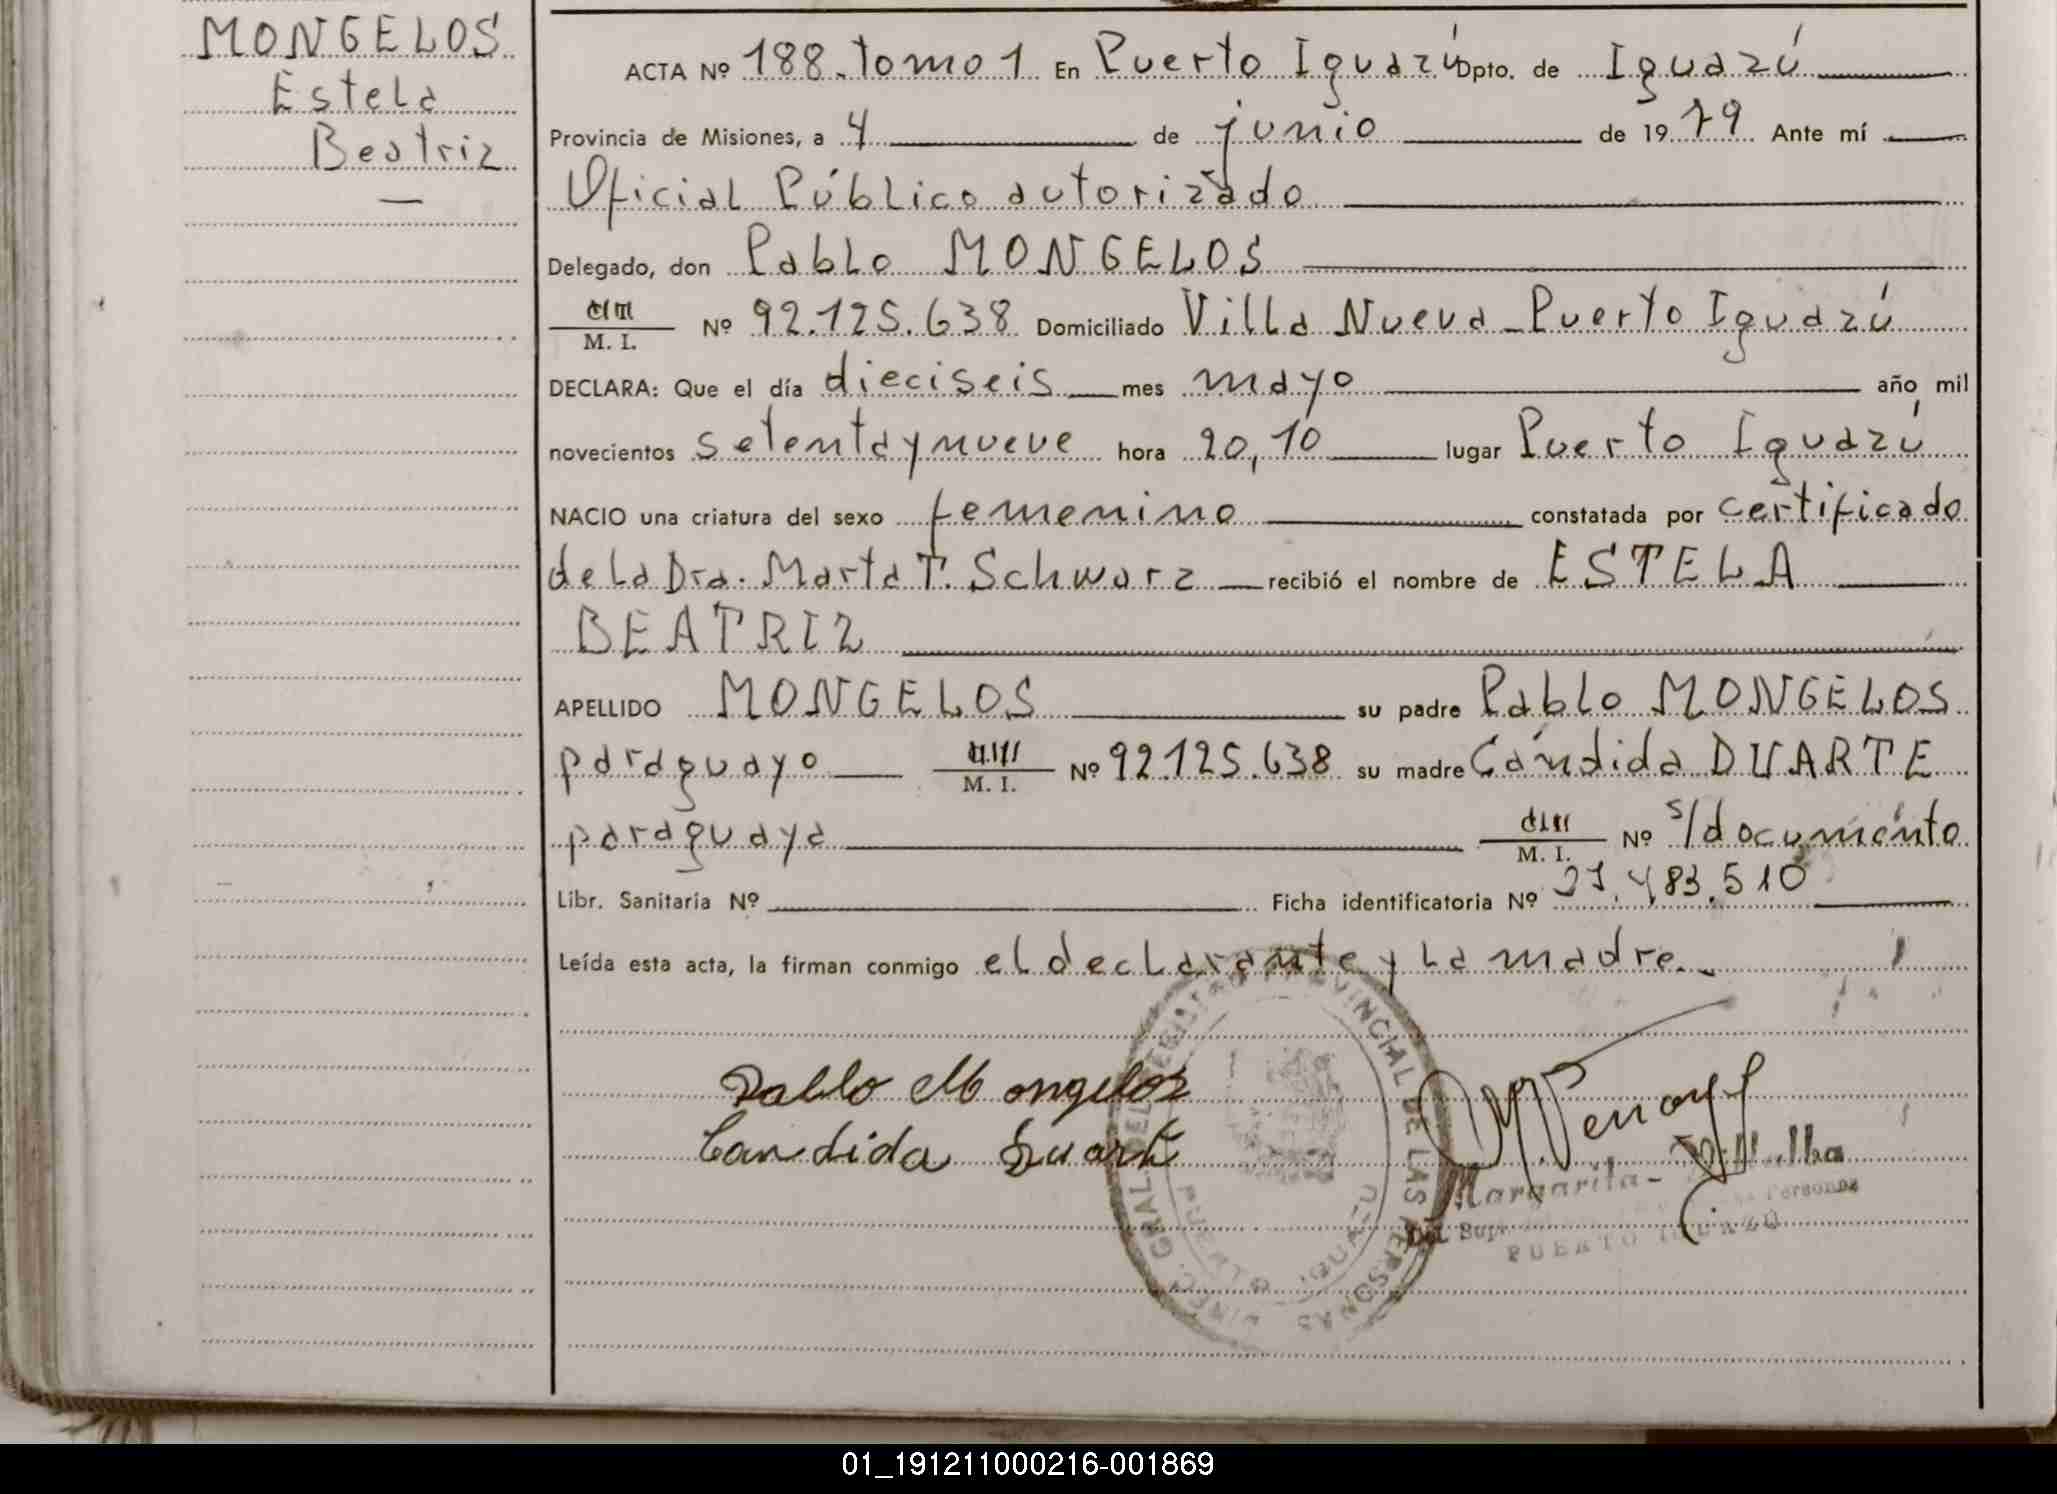 MONGELOS
Estela
Beatriz
ACTA Nº 188. Tomo 1 En Puerto Iguazú Dpto. de Iguazú
Provincia de Misiones, a 4 de junio de 1979 Ante mí
Oficial Público autorizado
Delegado, don Pablo MONGELOS
M. I. Nº 92.125.638 Domiciliado Villa Nueva - Puerto Iguazú
DECLARA: Que el día dieciseis mes mayo año mil
novecientos setenta y nueve hora 20,10 lugar Puerto Iguazú
NACIO una criatura del sexo femenino constatada por certificado
de la Dra. Marta T. Schwarz recibió el nombre de ESTELA
BEATRIZ
APELLIDO MONGELOS su padre Pablo MONGELOS
paraguayo M. I. Nº 92.125.638 su madre Cándida DUARTE
paraguaya M. I. Nº s/documento
Libr. Sanitaria Nº Ficha identificatoria Nº 27.483.510
Leída esta acta, la firman conmigo el declarante y la madre.-
Pablo Mongelos
Candida Duarte
DIREC. GRAL DEL REGISTRO PROVINCIAL DE LAS PERSONAS
PUERTO IGUAZU
Margarita Villalba
Personas
PUERTO IGUAZU
01_191211000216-001869